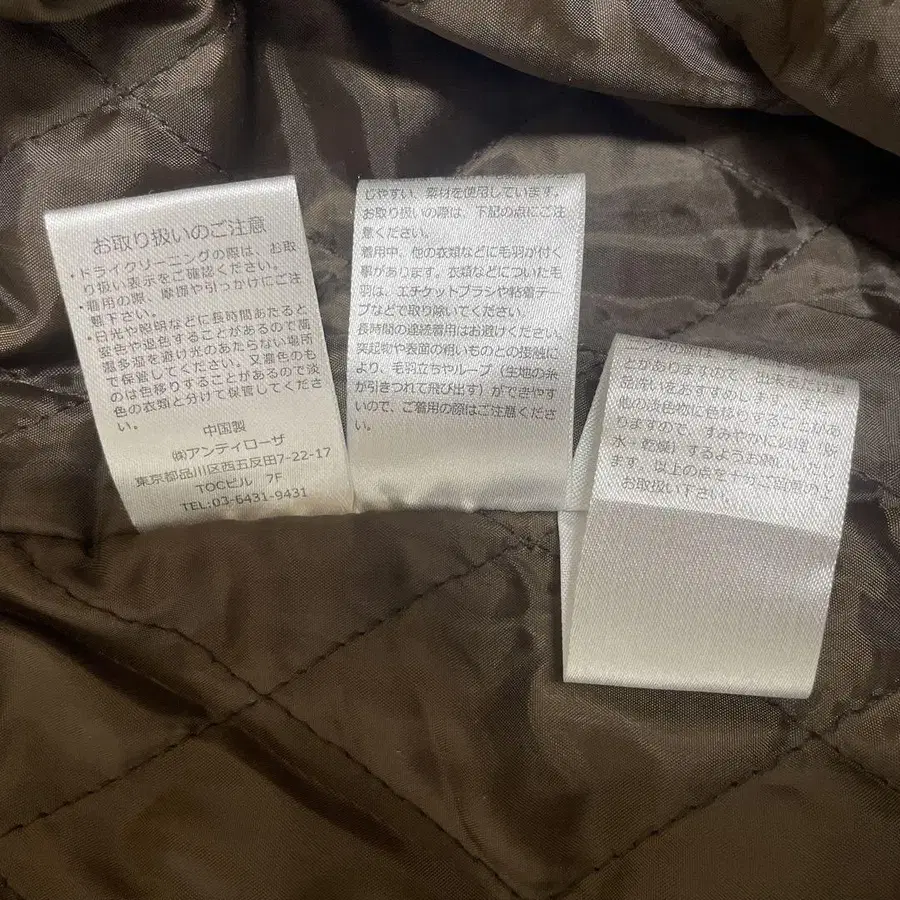 お取り扱いのご注意
・ドライクリーニングの際は、お取
り扱い表示をご確認ください。
・着用の際、摩擦や引っかけにご注
意下さい。
・日光や照明などに長時間あたると
変色や退色することがあるので高
温多湿を避け光のあたらない場所
で保管してください。又濃色のも
のは色移りすることがあるので淡
色の衣類と分けて保管してくださ
い。
中国製
㈱アンティローザ
東京都品川区西五反田7-22-17
TOCビル 7F
TEL:03-6431-9431
じやすい、素材を使用しています。
お取り扱いの際は、下記の点にご注
意ください。
着用中、他の衣類などに毛羽が付く
事があります。衣類などについた毛
羽は、エチケットブラシや粘着テー
プなどで取り除いてください。
長時間の連続着用はお避けください。
突起物や表面の粗いものとの接触に
より、毛羽立ちやループ（生地の糸
が引きつれて飛び出す）ができやす
いので、ご着用の際はご注意くださ
い。
とがありますので、出来るだけ単
品洗いをおすすめします。また、
他の淡色物に色移りすることがあ
りますので、すみやかに処理（脱
水・乾燥）するようお願いいたし
ます。以上の点を十分ご留意の上
お取扱い下さい。